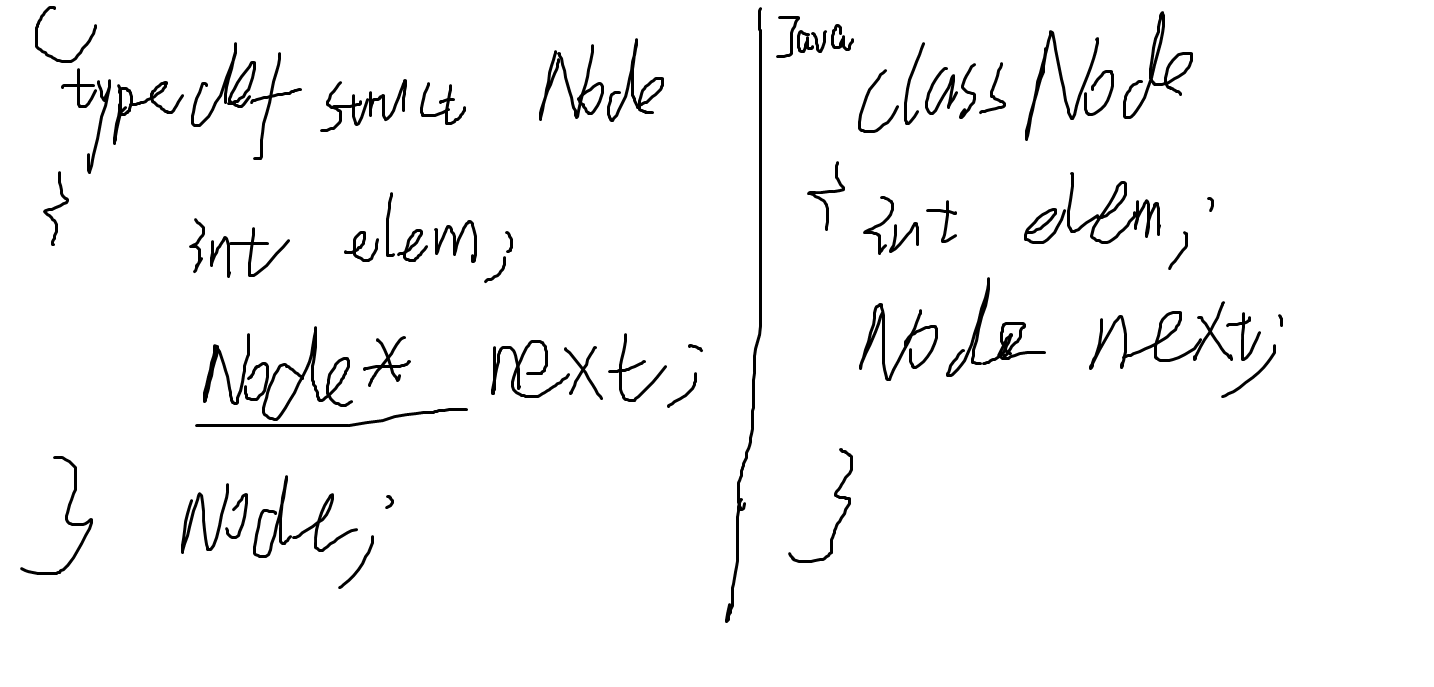 C
typedef struct Node
{
int elem;
Node* next;
} Node;
Java
class Node
{ int elem;
Node next;
}